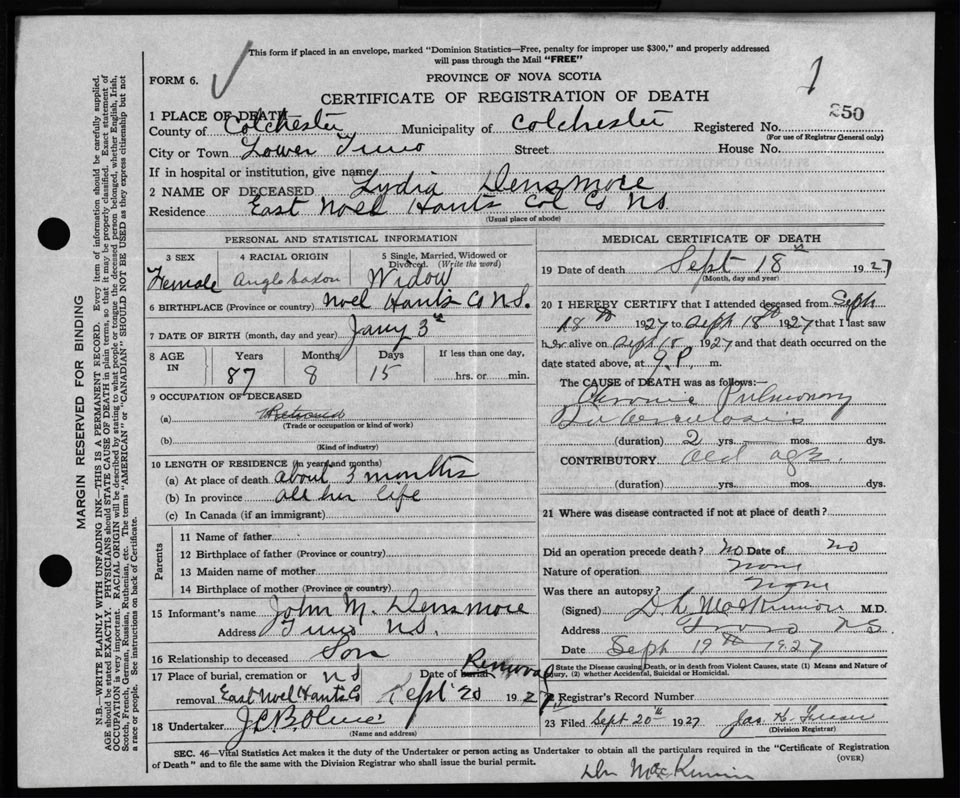 This form if placed in an envelope, marked "Dominion Statistics—Free, penalty for improper use $300," and properly addressed
will pass through the Mail "FREE"
FORM 6.
PROVINCE OF NOVA SCOTIA
1
CERTIFICATE OF REGISTRATION OF DEATH
250
1 PLACE OF DEATH
County of Colchester Municipality of Colchester Registered No.
(For use of Registrar General only)
City or Town Lower Truro Street House No.
If in hospital or institution, give name
2 NAME OF DECEASED Lydia Densmore
Residence East Noel Hants Col Co NS
(Usual place of abode)
PERSONAL AND STATISTICAL INFORMATION
3 SEX 4 RACIAL ORIGIN 5 Single, Married, Widowed or Divorced. (Write the word)
Female Anglo Saxon Widow
6 BIRTHPLACE (Province or country) Noel Hants Co N.S.
7 DATE OF BIRTH (month, day and year) Jany 3rd
8 AGE IN Years Months Days If less than one day,
87 8 15 hrs. or min.
9 OCCUPATION OF DECEASED
(a) Retired
(Trade or occupation or kind of work)
(b)
(Kind of industry)
10 LENGTH OF RESIDENCE (in years and months)
(a) At place of death about 3 months
(b) In province all her life
(c) In Canada (if an immigrant)
Parents
11 Name of father
12 Birthplace of father (Province or country)
13 Maiden name of mother
14 Birthplace of mother (Province or country)
15 Informant's name John M. Densmore
Address Truro N.S.
16 Relationship to deceased Son
17 Place of burial, cremation or removal East Noel Hants Co NS
Date of burial Removal Sept 20 1927
18 Undertaker
(Name and address)
MEDICAL CERTIFICATE OF DEATH
19 Date of death Sept 18th 1927
(Month, day and year)
20 I HEREBY CERTIFY that I attended deceased from Seph
18th 1927 to Seph 18th 1927 that I last saw
her alive on Seph 18 1927 and that death occurred on the
date stated above, at 9 P. m.
The CAUSE of DEATH was as follows:—
Chronic Pulmonary
Tuberculosis
(duration) 2 yrs. mos. dys.
CONTRIBUTORY Old age.
(duration) yrs. mos. dys.
21 Where was disease contracted if not at place of death?
Did an operation precede death? No Date of no
Nature of operation none
Was there an autopsy? none
(Signed) D. L. MacKinnon M.D.
Address Truro N.S.
Date Seph 19th 1927
State the Disease causing Death, or in death from Violent Causes, state (1) Means and Nature of
Injury, (2) whether Accidental, Suicidal or Homicidal.
Registrar's Record Number
23 Filed Sept 20th 1927 Jas
(Division Registrar)
SEC. 46—Vital Statistics Act makes it the duty of the Undertaker or person acting as Undertaker to obtain all the particulars required in the "Certificate of Registration
of Death" and to file the same with the Division Registrar who shall issue the burial permit.
(OVER)
MacKinnon
MARGIN RESERVED FOR BINDING
N.B.—WRITE PLAINLY WITH UNFADING INK—THIS IS A PERMANENT RECORD. Every item of information should be carefully supplied.
AGE should be stated EXACTLY. PHYSICIANS should STATE CAUSE OF DEATH in plain terms, so that it may be properly classified. Exact statement of
OCCUPATION is very important. RACIAL ORIGIN will be described by stating to what people or race the deceased person belonged, whether English, Irish,
Scotch, French, German, Russian, Ruthenian, etc. The terms "AMERICAN" or "CANADIAN" SHOULD NOT BE USED as they express citizenship but not
a race or people. See instructions on back of Certificate.